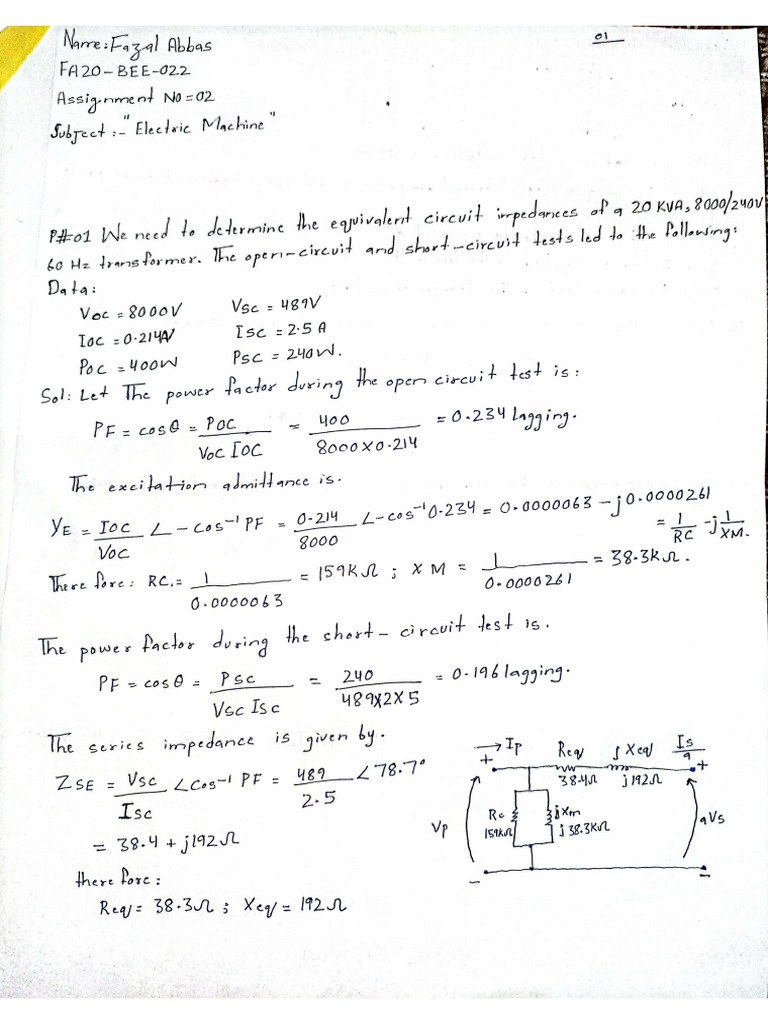 01
Name: Fazal Abbas
FA20-BEE-022
Assignment No = 02
Subject :- "Electric Machine"
P#01 We need to determine the equivalent circuit impedances of a 20 KVA, 8000/240V
60 Hz transformer. The open-circuit and short-circuit tests led to the following:
Data:
Voc = 8000V Vsc = 489V
Ioc = 0.214A Isc = 2.5 A
Poc = 400W Psc = 240W.
Sol: Let The power factor during the open circuit test is:
PF = cosθ = POC / VOC IOC = 400 / 8000X0.214 = 0.234 lagging.
The excitation admittance is.
YE = IOC / VOC ∠ - cos⁻¹ PF = 0.214 / 8000 ∠-cos⁻¹ 0.234 = 0.0000063 - j0.0000261
= 1 / RC - j 1 / XM.
There fore: RC. = 1 / 0.0000063 = 159KΩ ; XM = 1 / 0.0000261 = 38.3kΩ.
The power factor during the short-circuit test is.
PF = cosθ = PSC / VSC ISC = 240 / 489X2X5 = 0.196 lagging.
The series impedance is given by.
ZSE = VSC / ISC ∠cos⁻¹ PF = 489 / 2.5 ∠78.7°
= 38.4 + j192Ω
there fore:
Req = 38.3Ω ; Xeq = 192Ω
→ Ip Req jXeq Is/a
+ 38.4Ω j192Ω +
Rc jXm
159kΩ j38.3KΩ
Vp aVs
- -